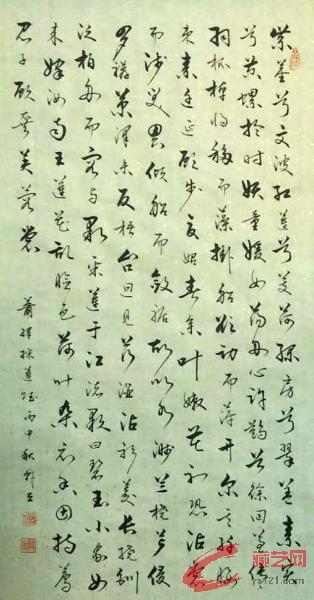 紫茎兮文波红莲兮芰荷绿房兮翠盖素实
兮黄螺於时妖童媛女荡舟心许鹢首徐回兼传
羽杯棹将移而藻挂船欲动而萍开尔其纤腰
束素迁延顾步夏始春余叶嫩花初恐沾裳
而浅笑畏倾船而敛裾故以水溅兰桡芦侵
罗襦菊泽未反梧台迥见荇湿沾衫菱长绕钏
泛柏舟而容与歌采莲于江渚歌曰碧玉小家女
来嫁汝南王莲花乱脸色荷叶杂衣香因持荐
君子愿袭芙蓉裳
萧绎采莲赋丙申秋
藏艺网
ys121.com